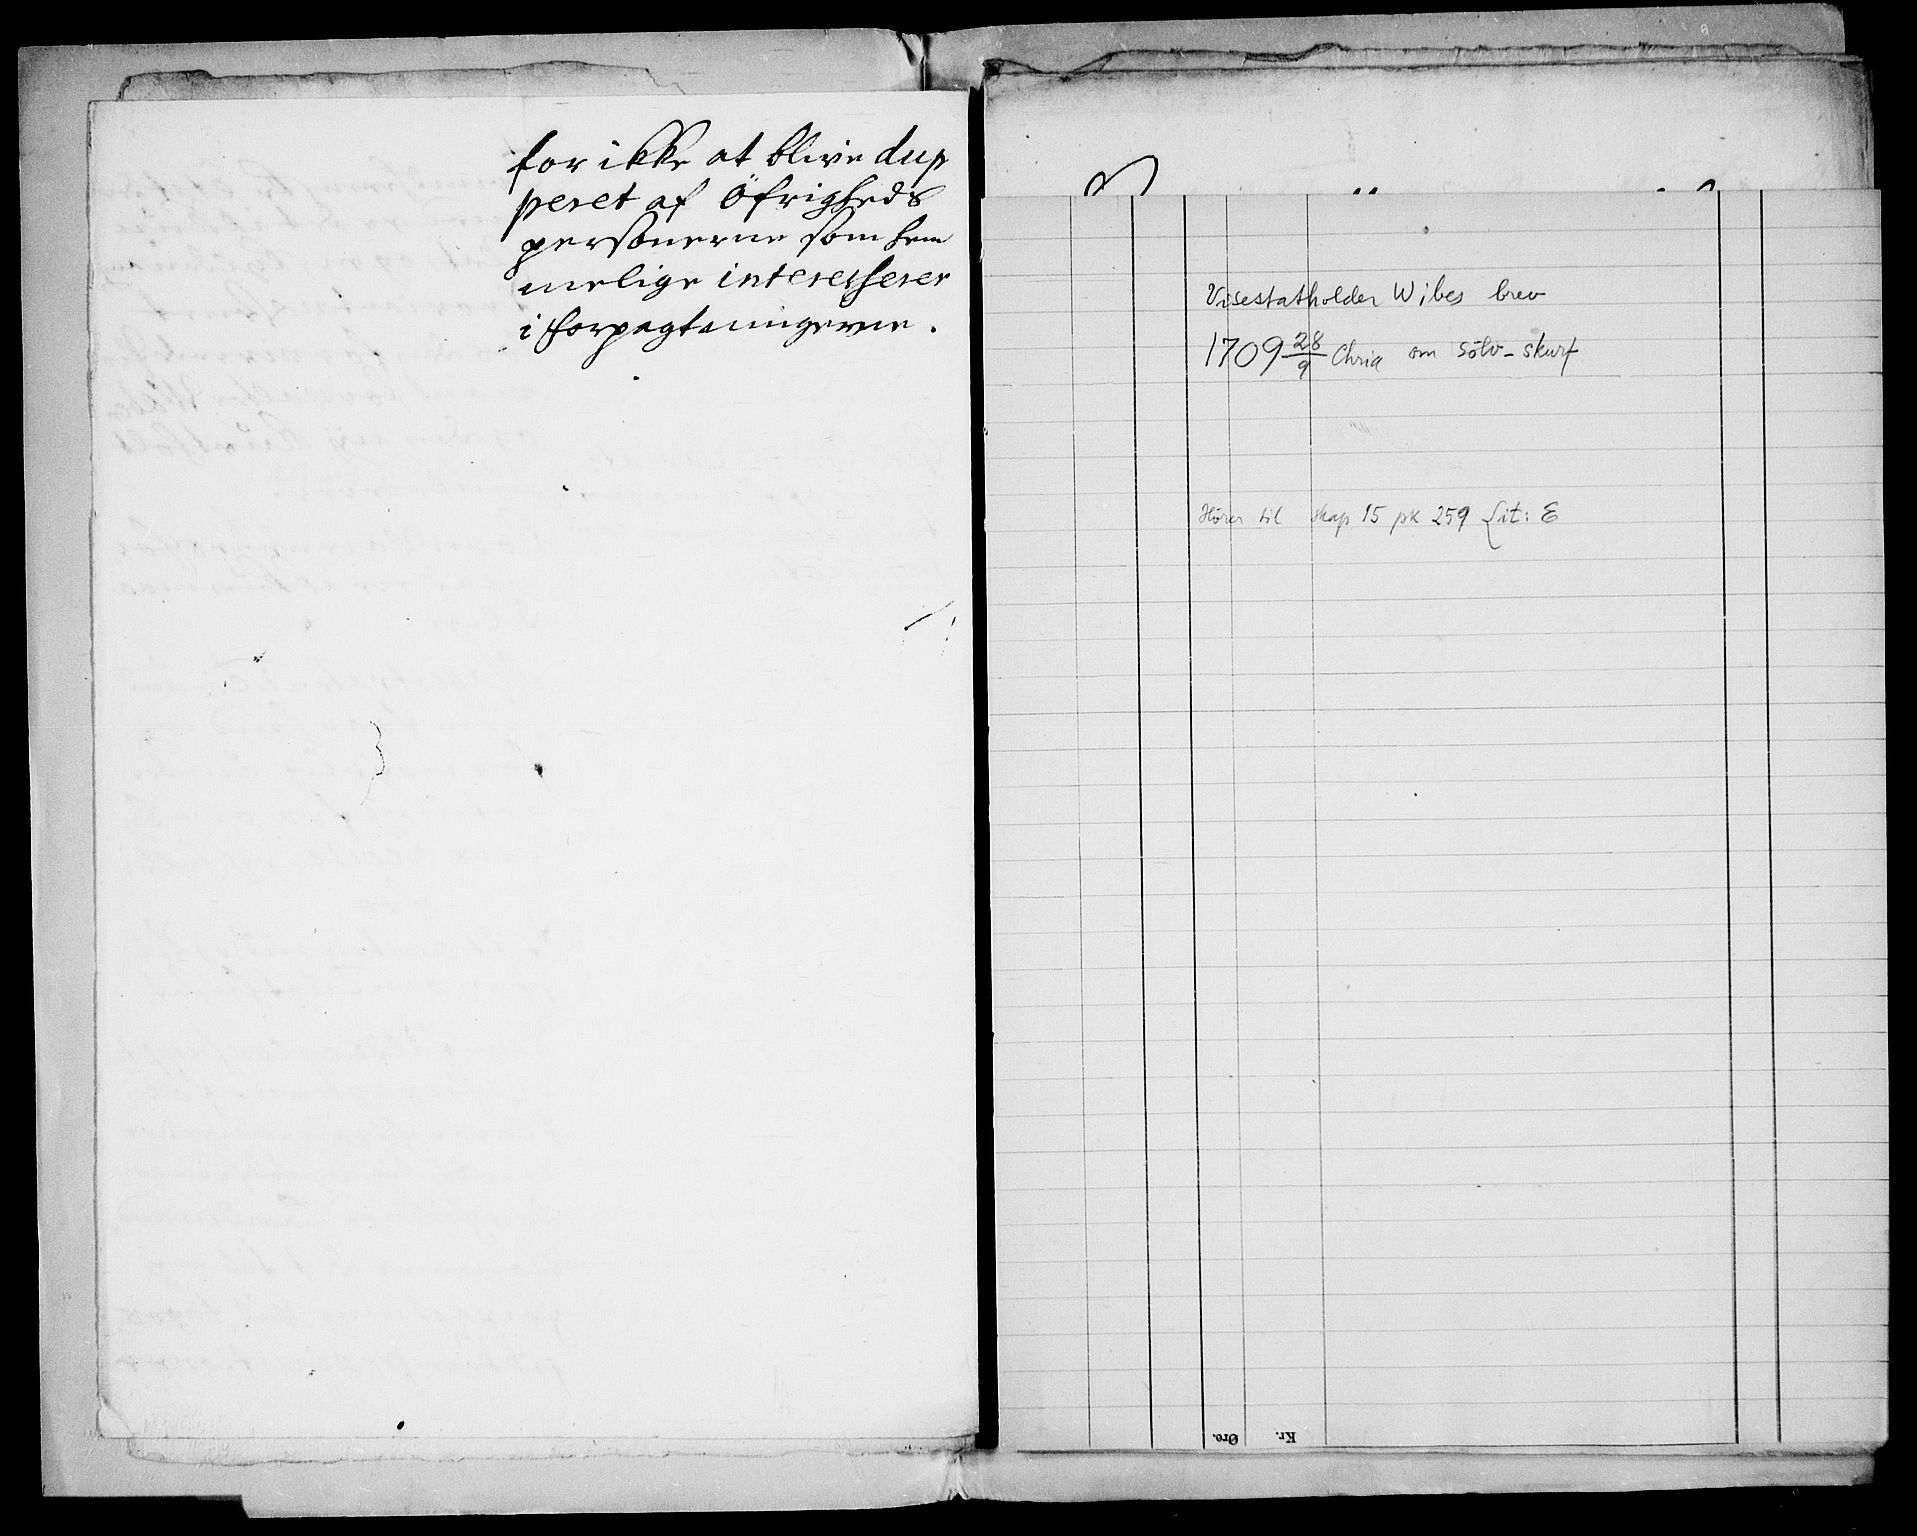 for ikke at blive dup
peret af Öfrigheds
personerne som hem
melige interesserer
i forpagtningerne.
Visestatholder Wibes brev
1709 28/9 Chria om sölv-skurf
Hører til skap 15 pk 259 Lit: E
Øre. Kr.